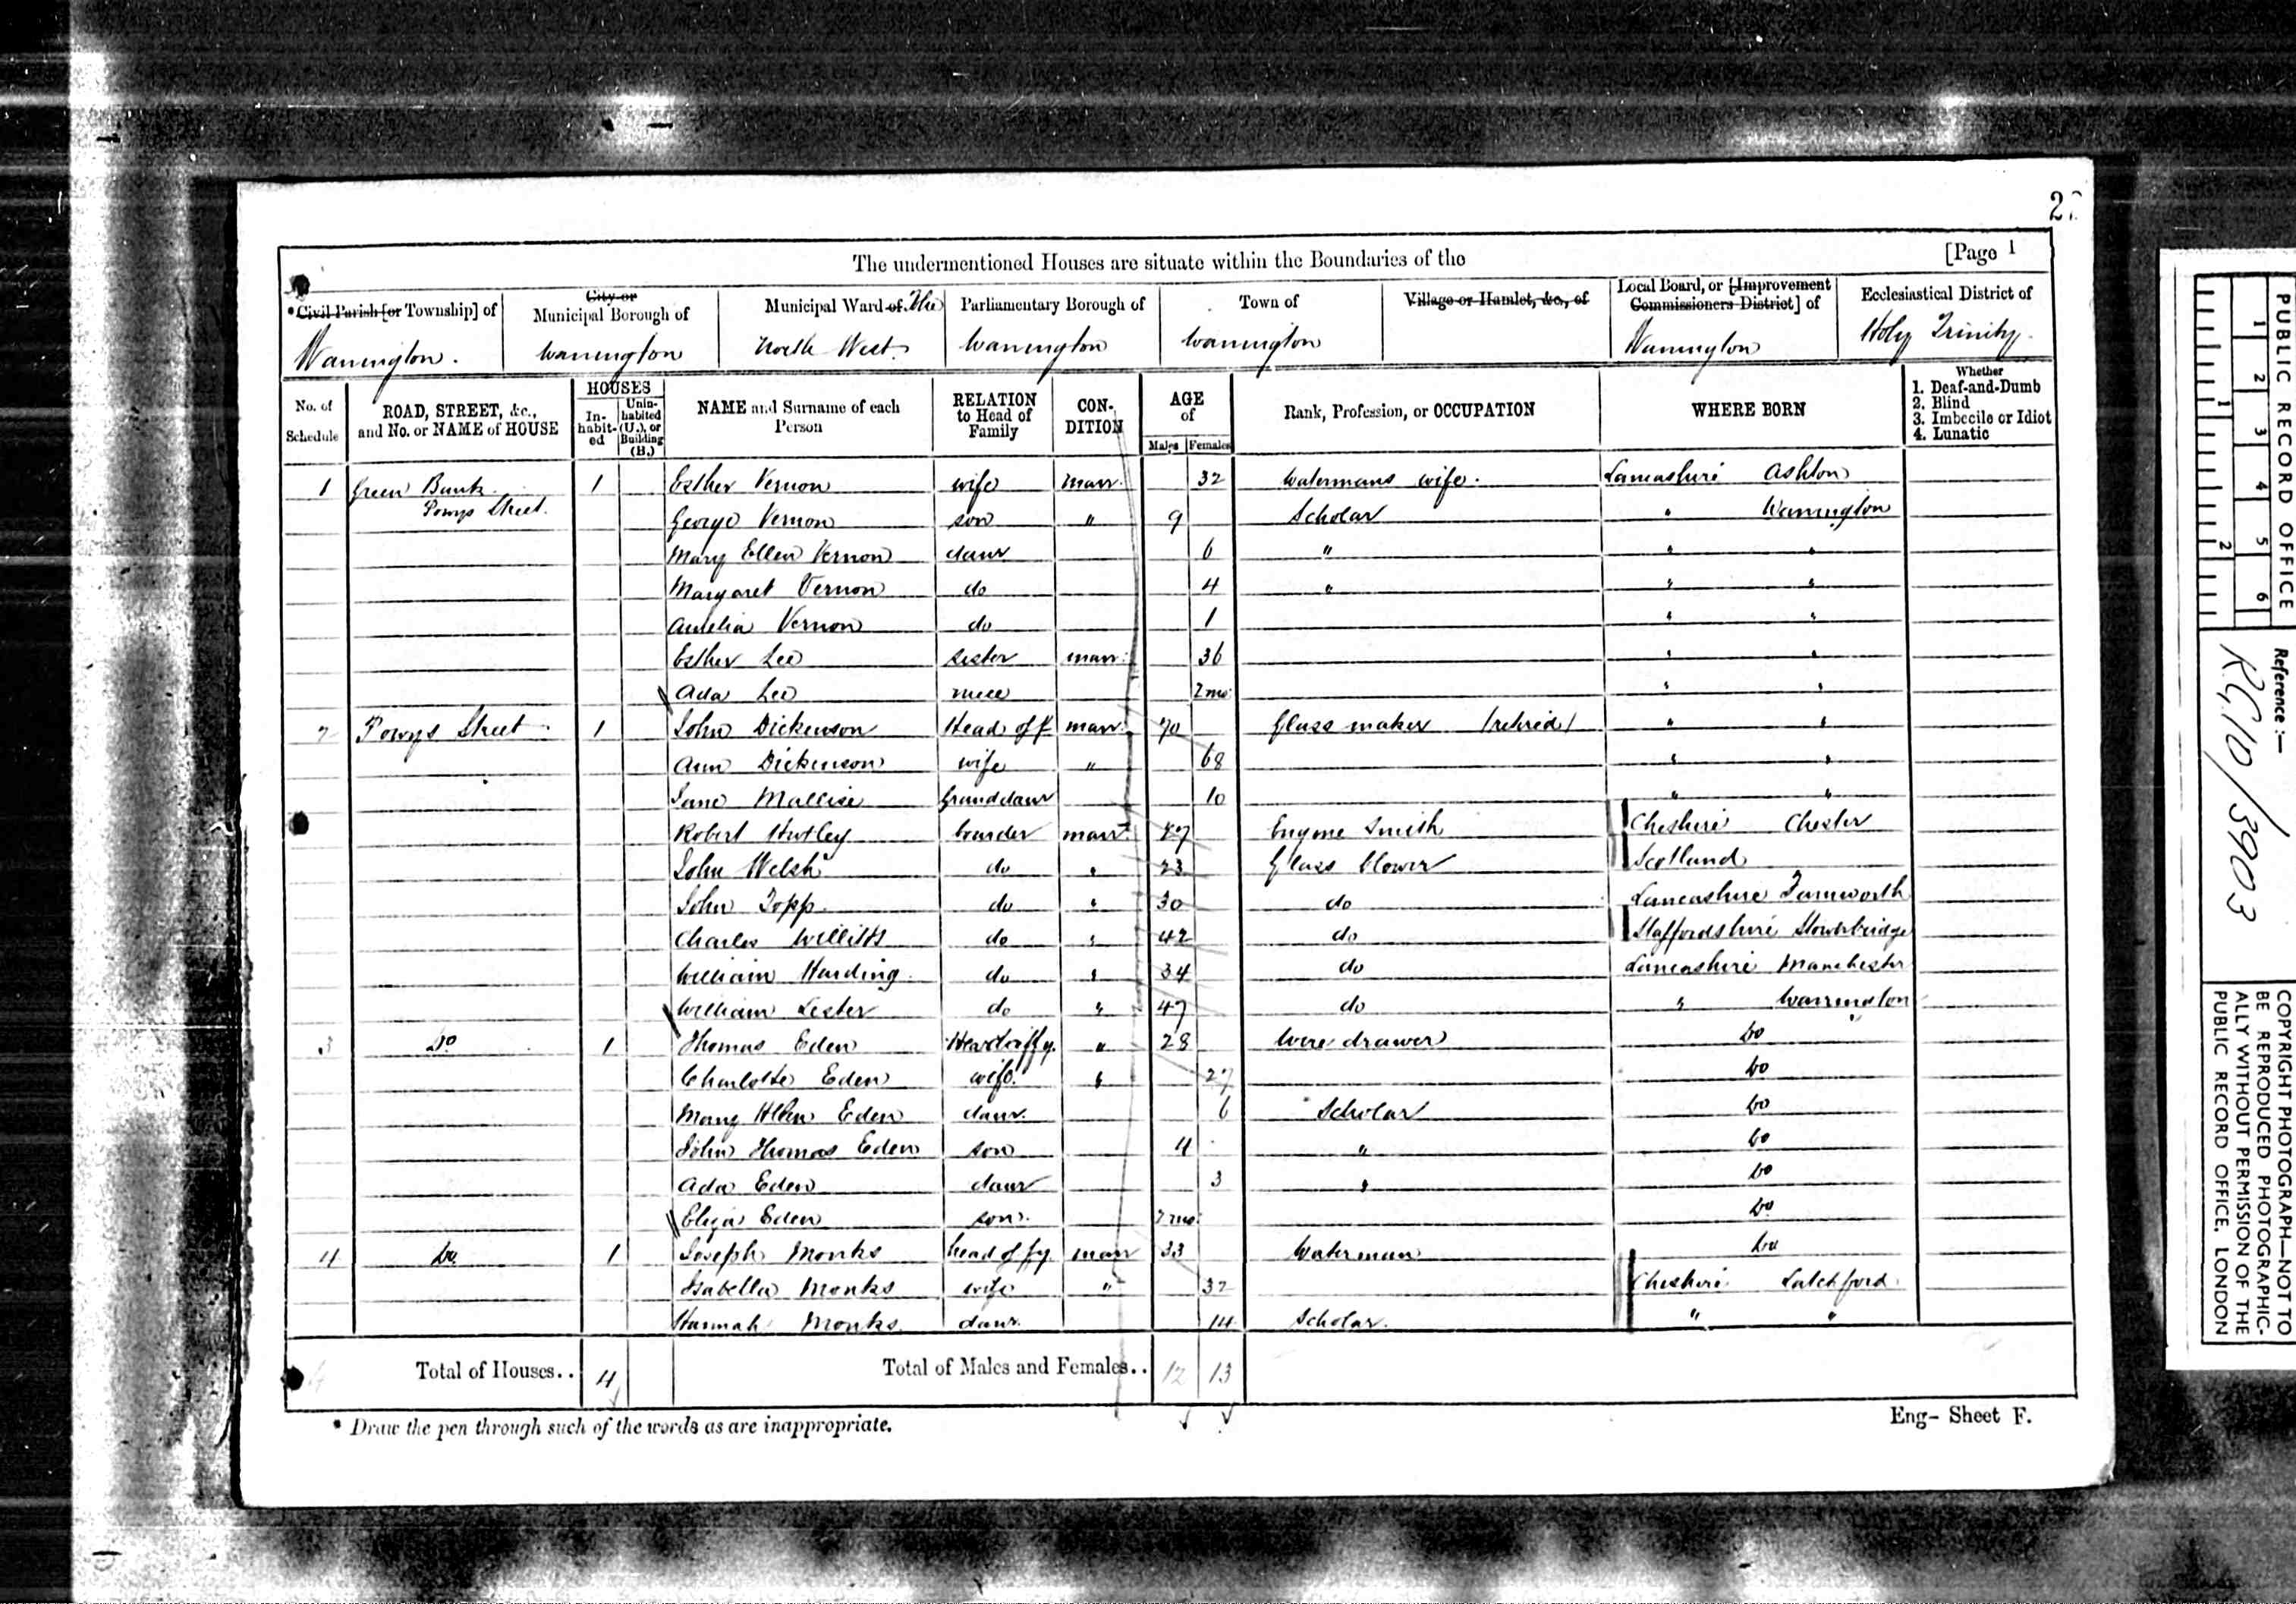 The undermentioned Houses are situate within the Boundaries of the [Page 1
*Civil Parish [or Township] of City or Municipal Borough of Municipal Ward of The Parliamentary Borough of Town of Village or Hamlet, &c., of Local Board, or [Improvement Commissioners District] of Ecclesiastical District of
Warrington. Warrington North West. Warrington Warrington Warrington Holy Trinity.
No. of Schedule ROAD, STREET, &c., and No. or NAME of HOUSE HOUSES In-habit-ed Unin-habited (U.), or Building (B.) NAME and Surname of each Person RELATION to Head of Family CON-DITION AGE of Males Females Rank, Profession, or OCCUPATION WHERE BORN Whether 1. Deaf-and-Dumb 2. Blind 3. Imbecile or Idiot 4. Lunatic
1 Green Bank 1 Esther Vernon wife marr. 32 Watermans wife. Lancashire Ashton
Powys Street. George Vernon son " 9 Scholar " Warrington
Mary Ellen Vernon daur 6 " " "
Margaret Vernon do 4 " " "
Amelia Vernon do 1 " "
Esther Lee sister marr. 36 " "
Ada Lee niece 2 mo. " "
2 Powys Street 1 John Dickenson Head of f marr. 70 Glass maker (retired) " "
Ann Dickenson wife " 68 " "
Jane granddaur 10 " "
Robert boarder marr. Engine Smith Cheshire Chester
John Welsh do " 23 Glass blower Scotland
John Topp do " 30 do Lancashire
Charles do " 42 do Staffordshire Stourbridge
William Harding do " 34 do Lancashire Manchester
William Lester do " 47 do " Warrington
3 Do 1 Thomas Eden Head of fy. " 28 Wire drawer Do
Charlotte Eden wife. " 27 Do
Mary Eden daur. 6 Scholar Do
John Thomas Eden son 4 " Do
Ada Eden daur 3 " Do
Eliza Eden son. 2 mo. Do
4 Do. 1 Joseph Monks head of fy. marr 33 Waterman Do
Isabella Monks wife " 32 Cheshire Latchford
Hannah Monks daur. 14 Scholar. " "
Total of Houses.. 4 Total of Males and Females.. 12 13
* Draw the pen through such of the words as are inappropriate. Eng- Sheet F.
PUBLIC RECORD OFFICE
1 2 3 4 5 6
1 2
Reference :-
R.G.10/3903
COPYRIGHT PHOTOGRAPH—NOT TO
BE REPRODUCED PHOTOGRAPHIC-
ALLY WITHOUT PERMISSION OF THE
PUBLIC RECORD OFFICE, LONDON